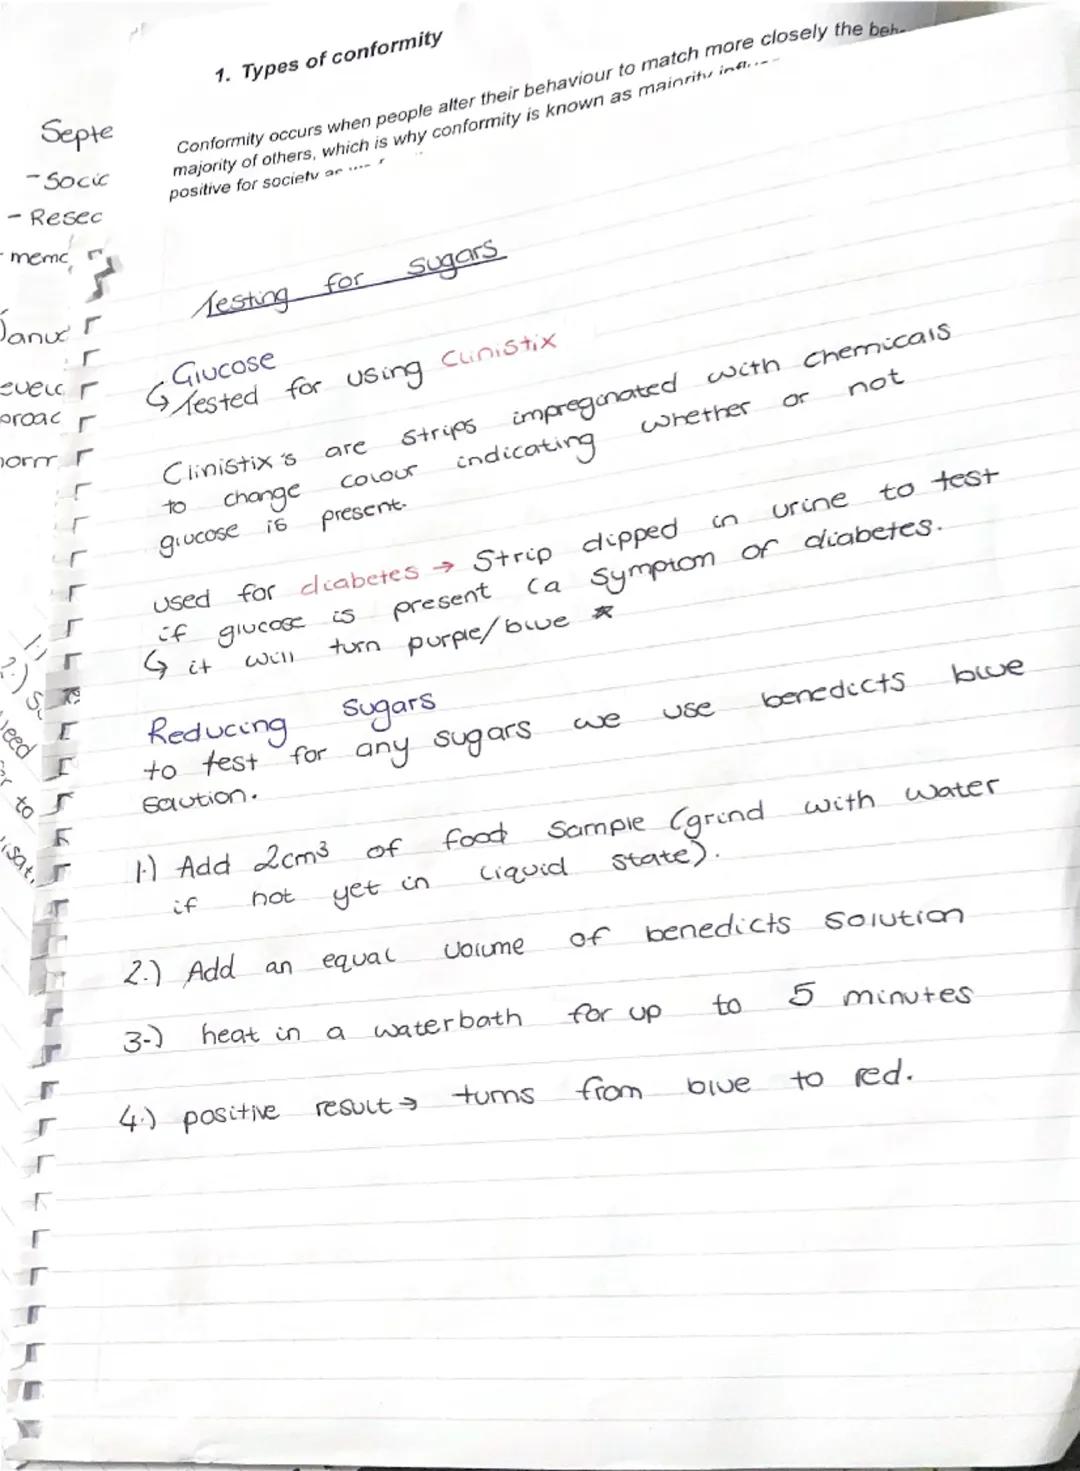 1. Types of conformity
Conformity occurs when people alter their behaviour to match more closely the
majority of others, which is why conformity is known as majority
positive for society
Testing for sugars
Glucose
↳ Tested for using Clinistix
Clinistix's are strips impreginated with chemicals
to change colour indicating whether or not
glucose is present.
used for diabetes → Strip dipped in urine to test
if glucose is present (a symptom of diabetes.
↳ it will turn purple/blue *
Reducing sugars
to test for any sugars we use benedicts blue
solution.
1.) Add 2cm³ of food sample (grind with water
if not yet in liquid state).
2.) Add an equal volume of benedicts solution
3.) heat in a waterbath for up to 5 minutes
4.) positive result → turns from blue to red.